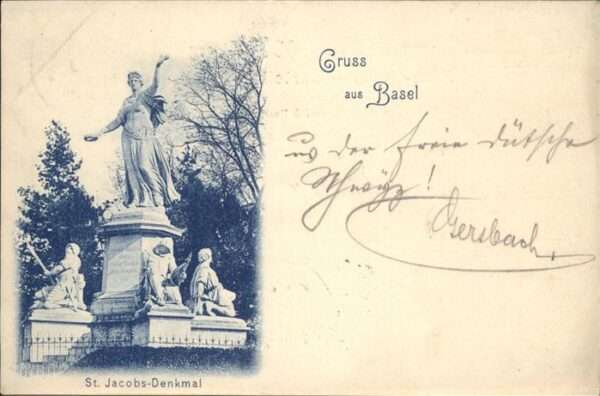 Gruss
aus Basel
us der freie dütsche
Schwÿz!
Gersbach.
St. Jacobs-Denkmal